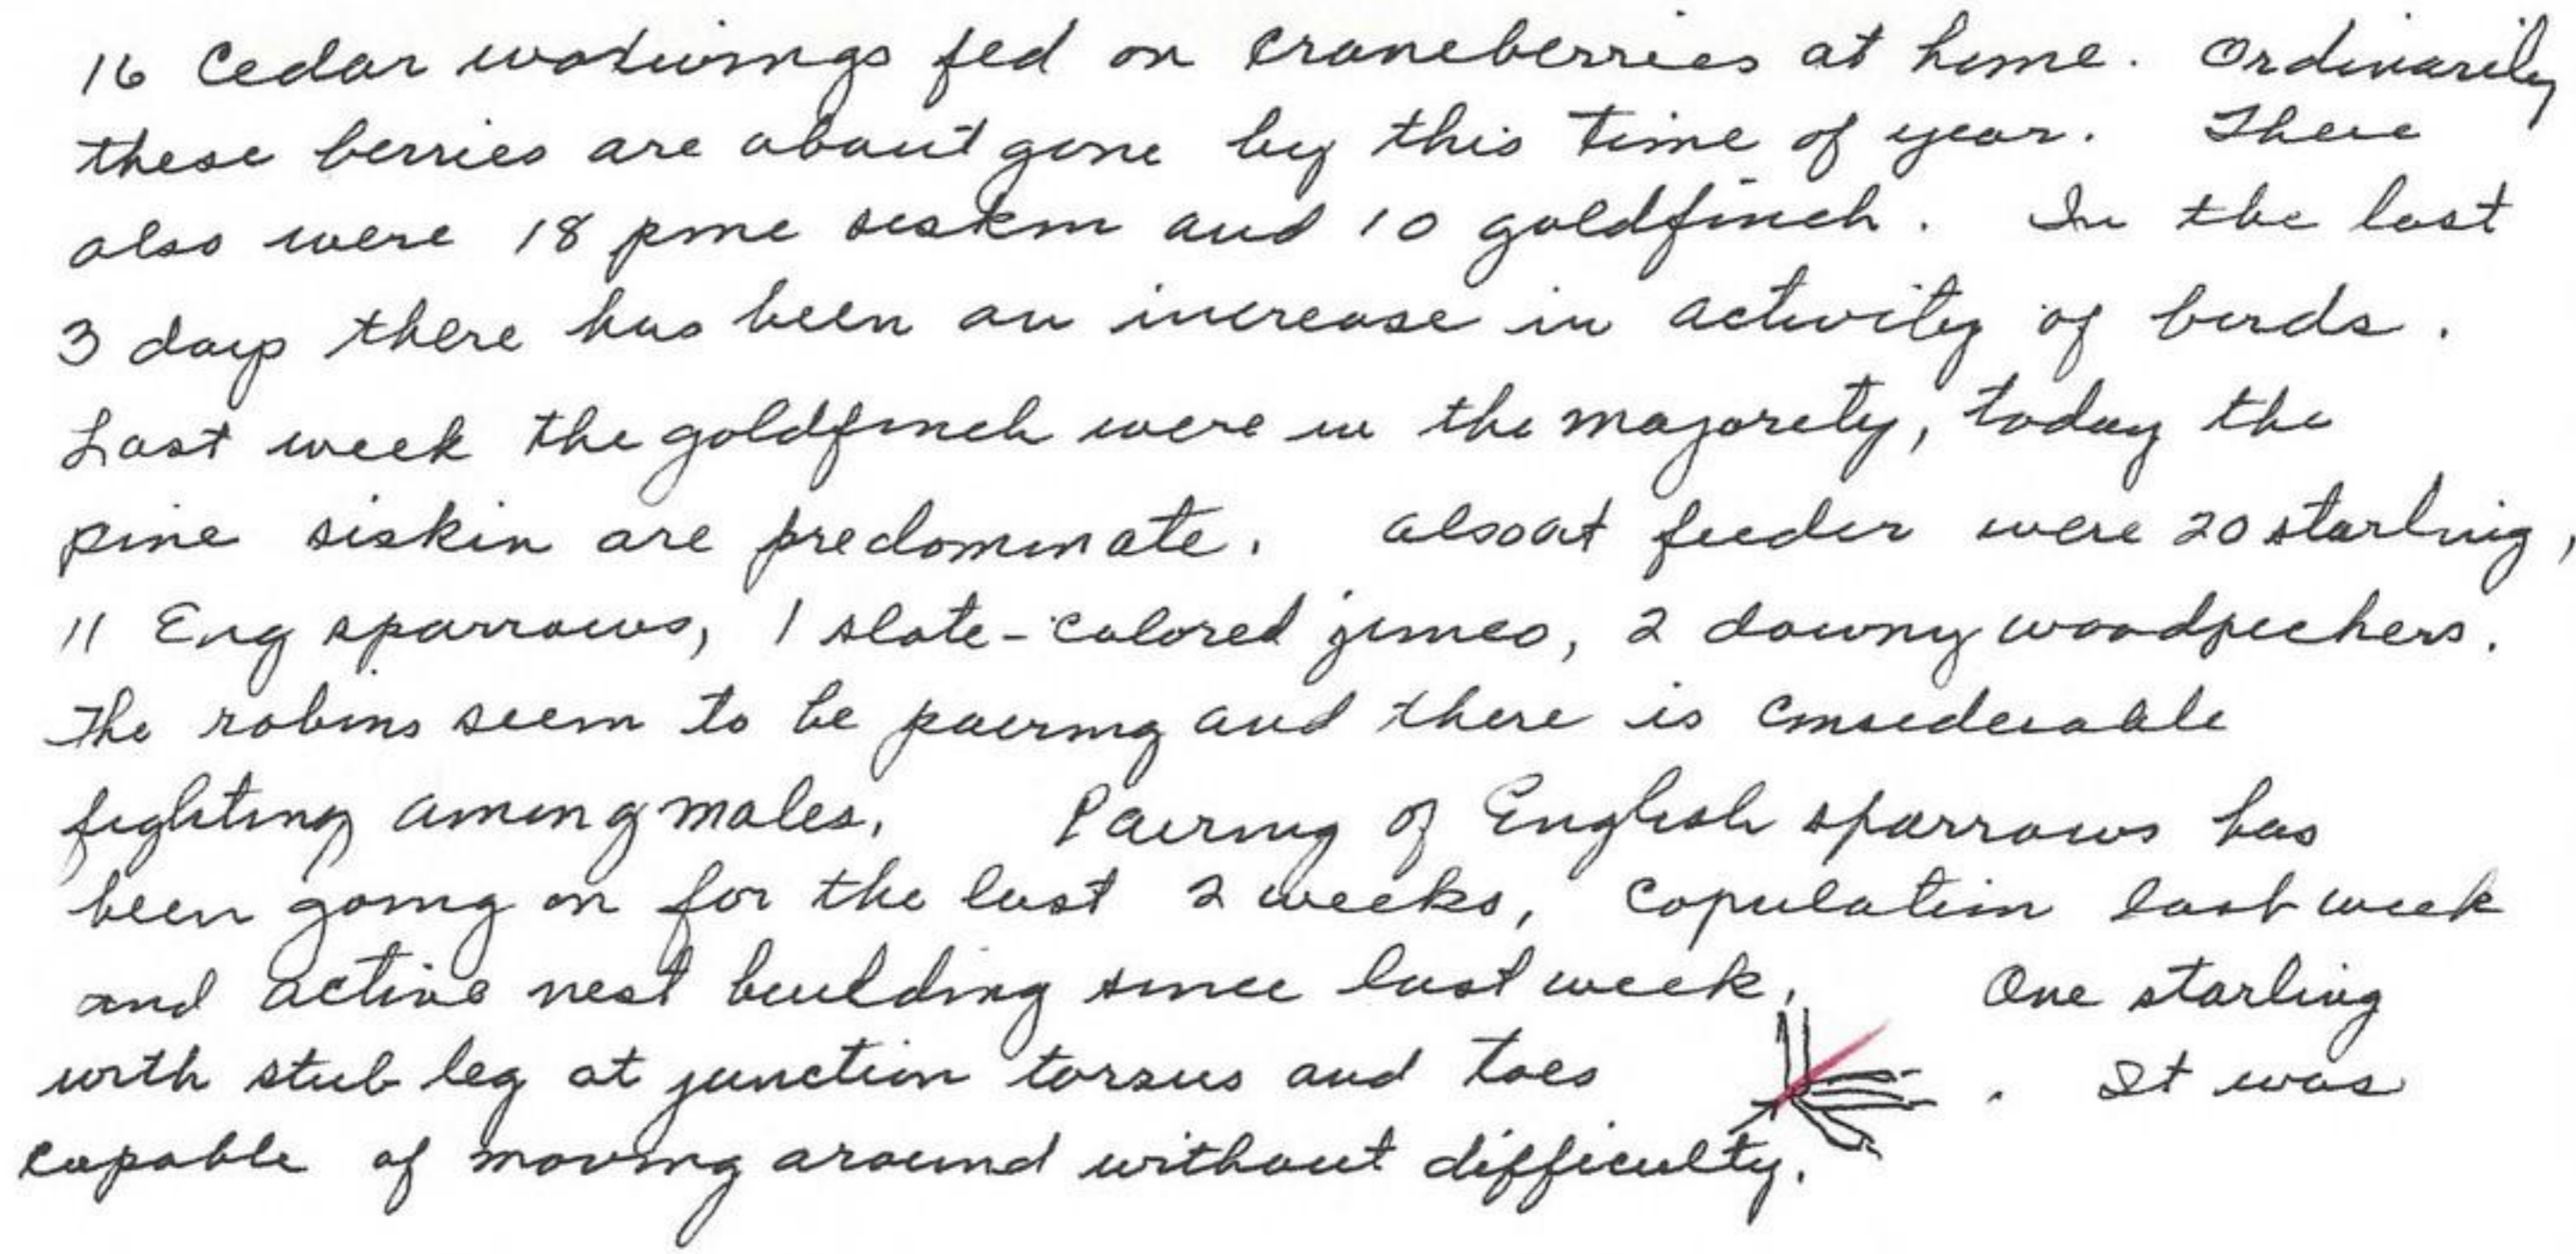 16 Cedar waxwings fed on craneberries at home. Ordinarily
these berries are about gone by this time of year. There
also were 18 pine siskin and 10 goldfinch. In the last
3 days there has been an increase in activity of birds.
Last week the goldfinch were in the majority, today the
pine siskin are predominate. also at feeder were 20 starling,
11 Eng sparrows, 1 slate-colored junco, 2 downy woodpeckers.
The robins seem to be pairing and there is considerable
fighting among males. Pairing of English sparrows has
been going on for the last 2 weeks, copulation last week
and active nest building since last week. One starling
with stub leg at junction tarsus and toes . It was
capable of moving around without difficulty.